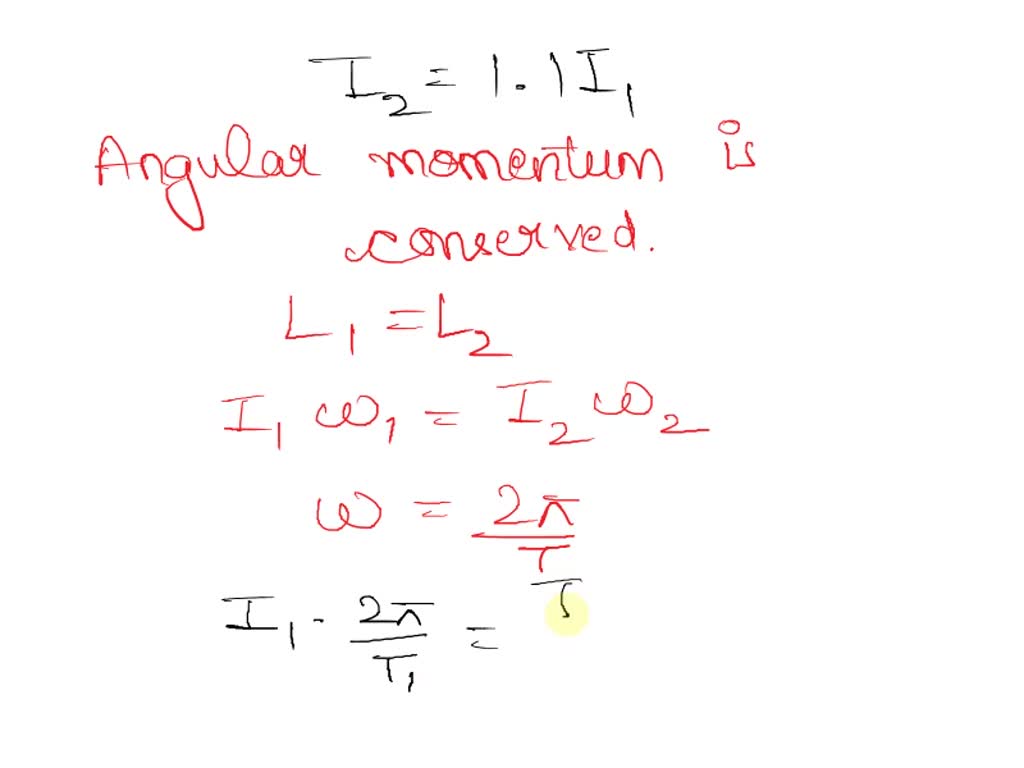 I₂ = 1.1I₁
Angular momentum is
conserved.
L₁ = L₂
I₁ ω₁ = I₂ ω₂
ω = 2π/T
I₁ · 2π/T₁ = I